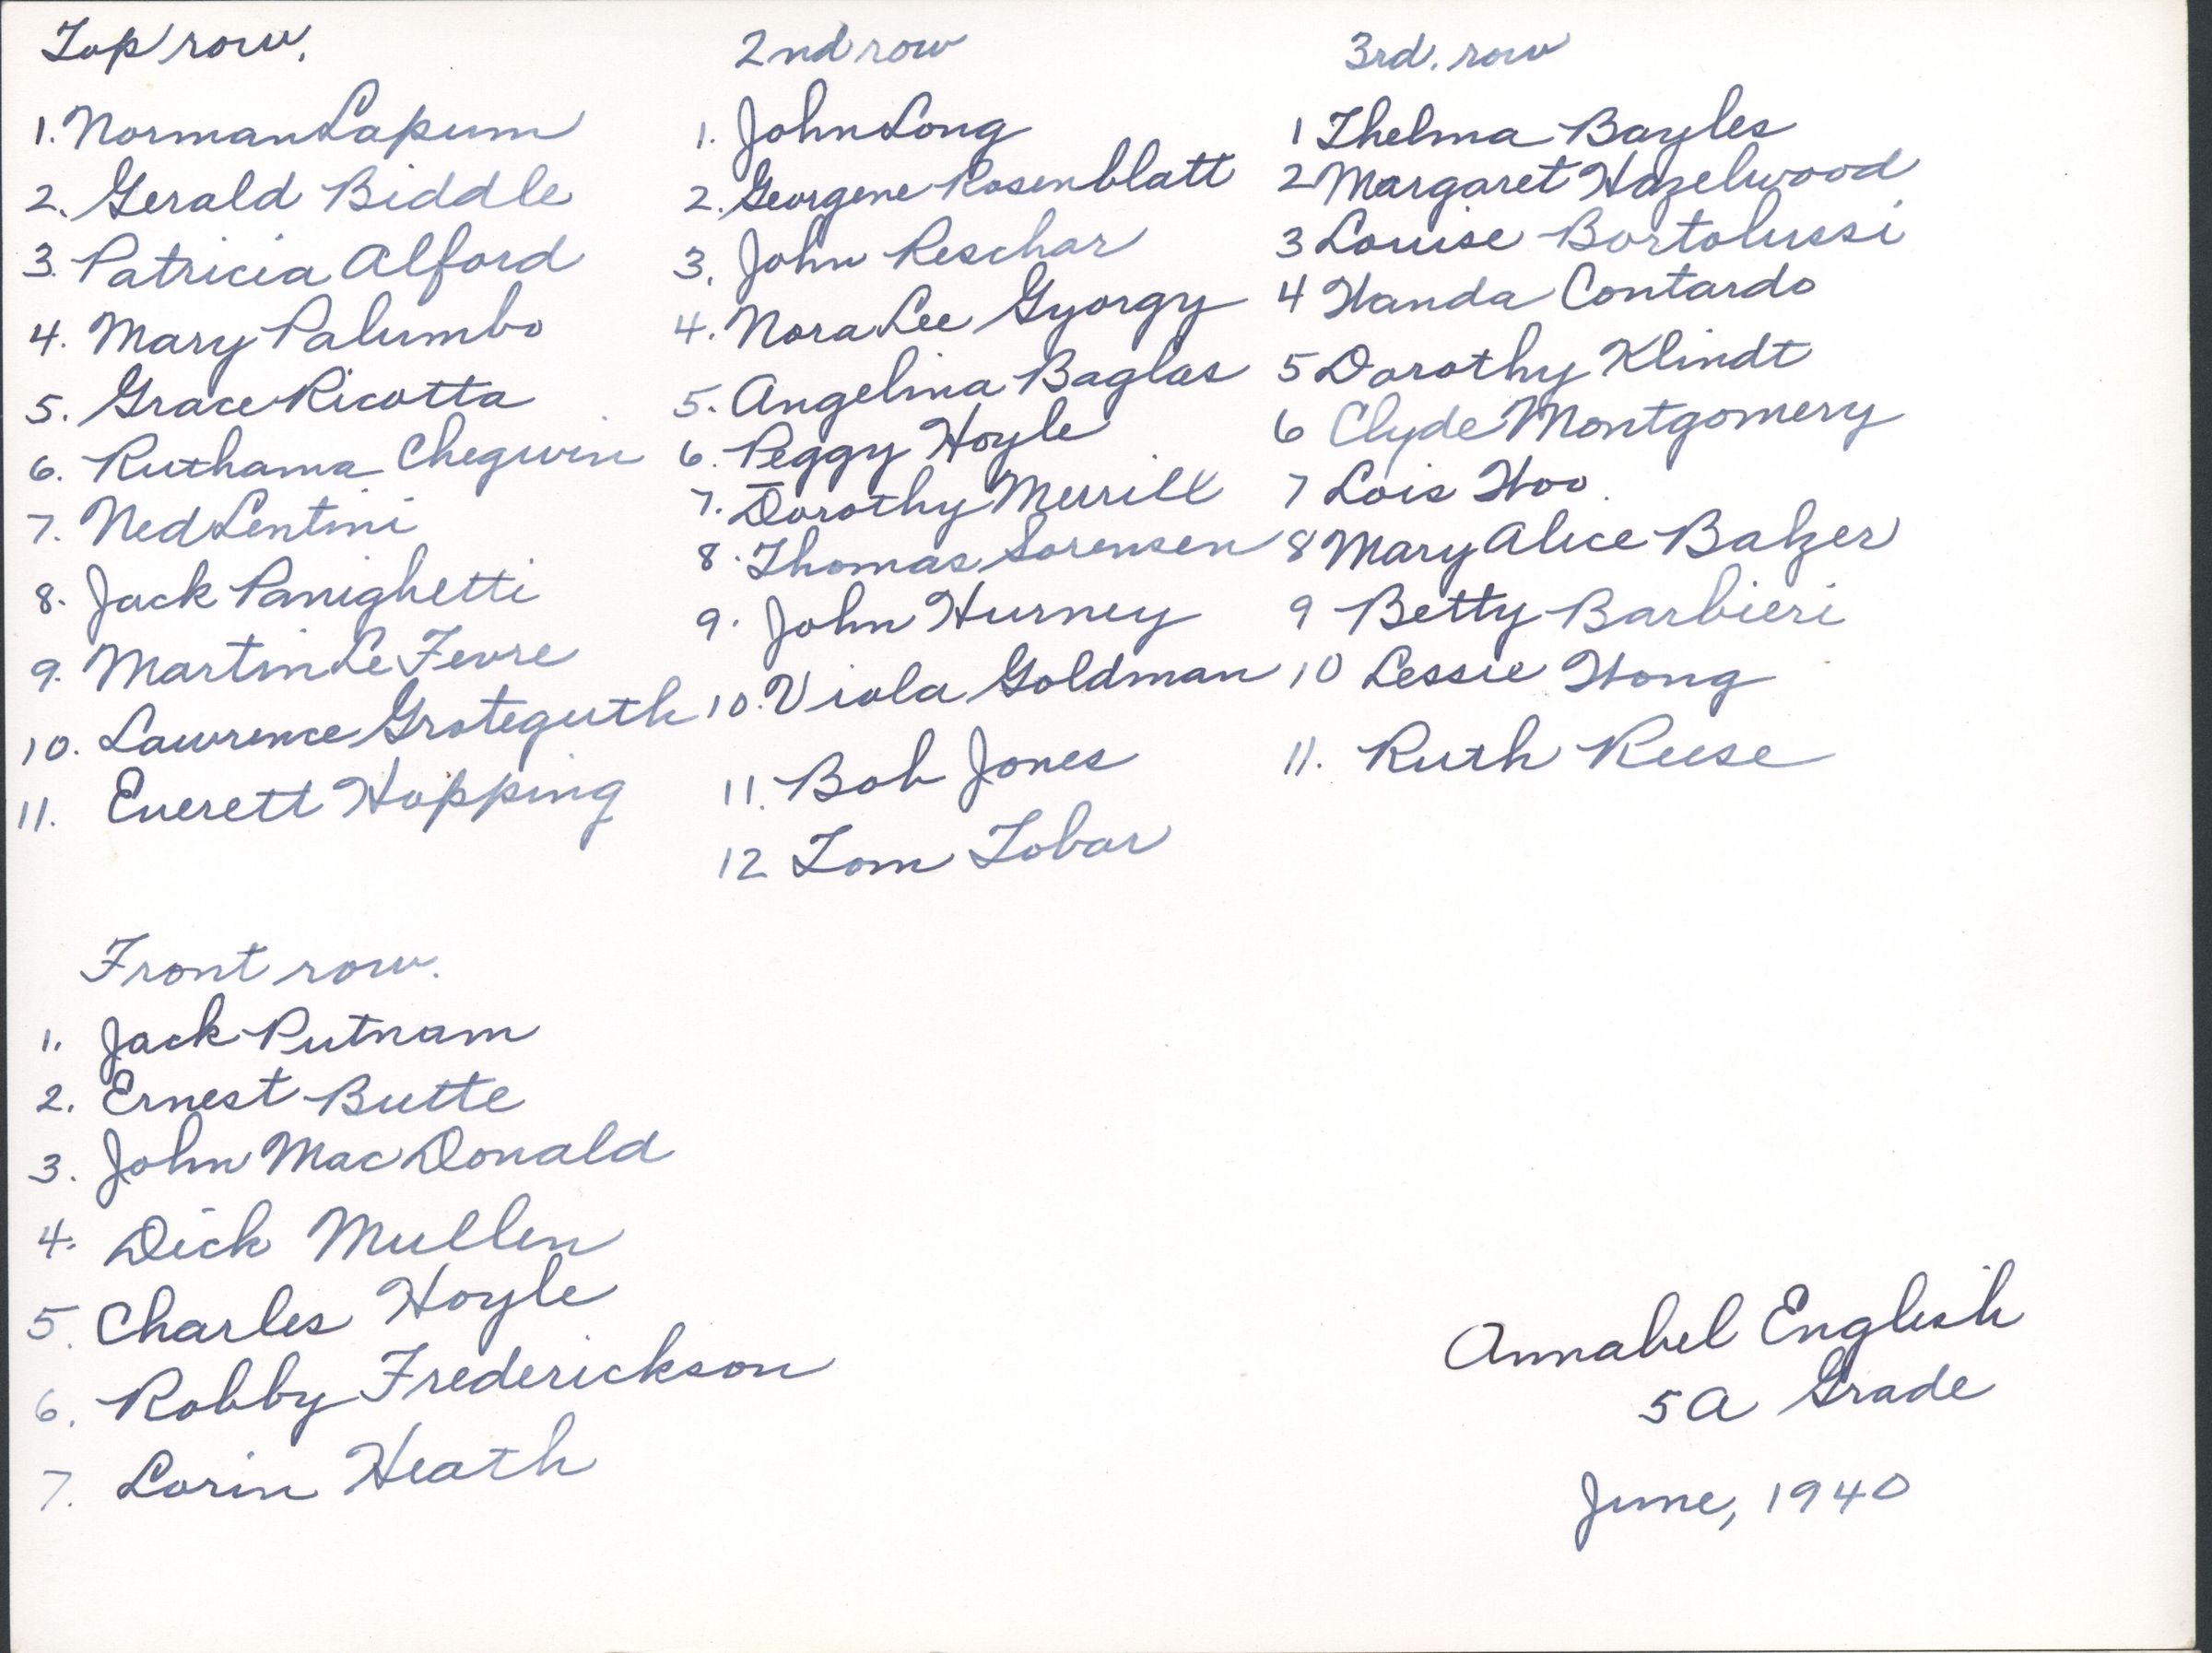 Top row.
1. Norman Lapum
2. Gerald Biddle
3. Patricia Alford
4. Mary Palumbo
5. Grace Ricotta
6. Ruthama Chegwin
7. Ned Lentini
8. Jack Panighetti
9. Martin Le Fevre
10. Lawrence Groteguth
11. Everett Hopping
2nd row
1. John Long
2. Georgene Rosenblatt
3. John Reschar
4. Nora Lee Gyorgy
5. Angelina Baglas
6. Peggy Hoyle
7. Dorothy Merrill
8. Thomas Sorensen
9. John Hurney
10. Viola Goldman
11. Bob Jones
12 Tom Tobar
3rd. row
1 Thelma Bayles
2 Margaret Hazelwood
3 Louise Bortolussi
4 Wanda Contardo
5 Dorothy Klindt
6 Clyde Montgomery
7 Lois Woo
8 Mary Alice Balzer
9 Betty Barbieri
10 Lessie Wong
11. Ruth Reese
Front row.
1. Jack Putnam
2. Ernest Butte
3. John Mac Donald
4. Dick Mullen
5. Charles Hoyle
6. Robby Frederickson
7. Lorin Heath
Annabel English
5A Grade
June, 1940